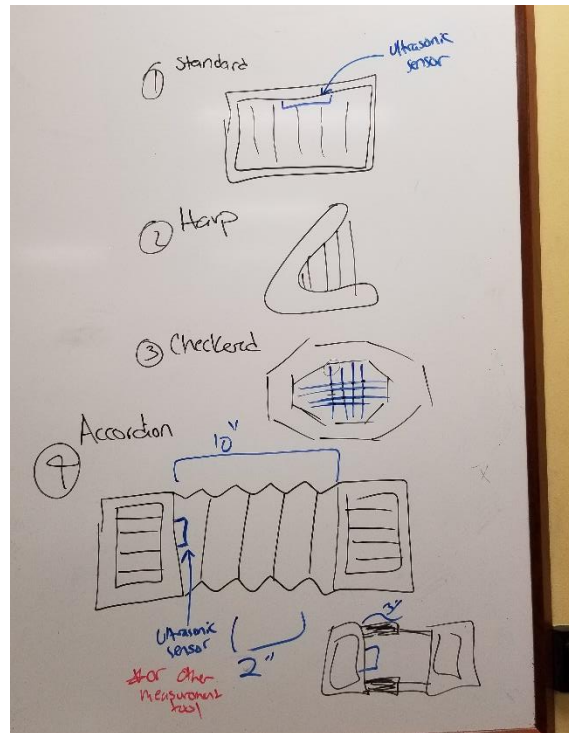 ① Standard
Ultrasonic
sensor
② Harp
③ Checkered
④ Accordion
10"
Ultrasonic
sensor
2"
3"
*or other
measurement
tool